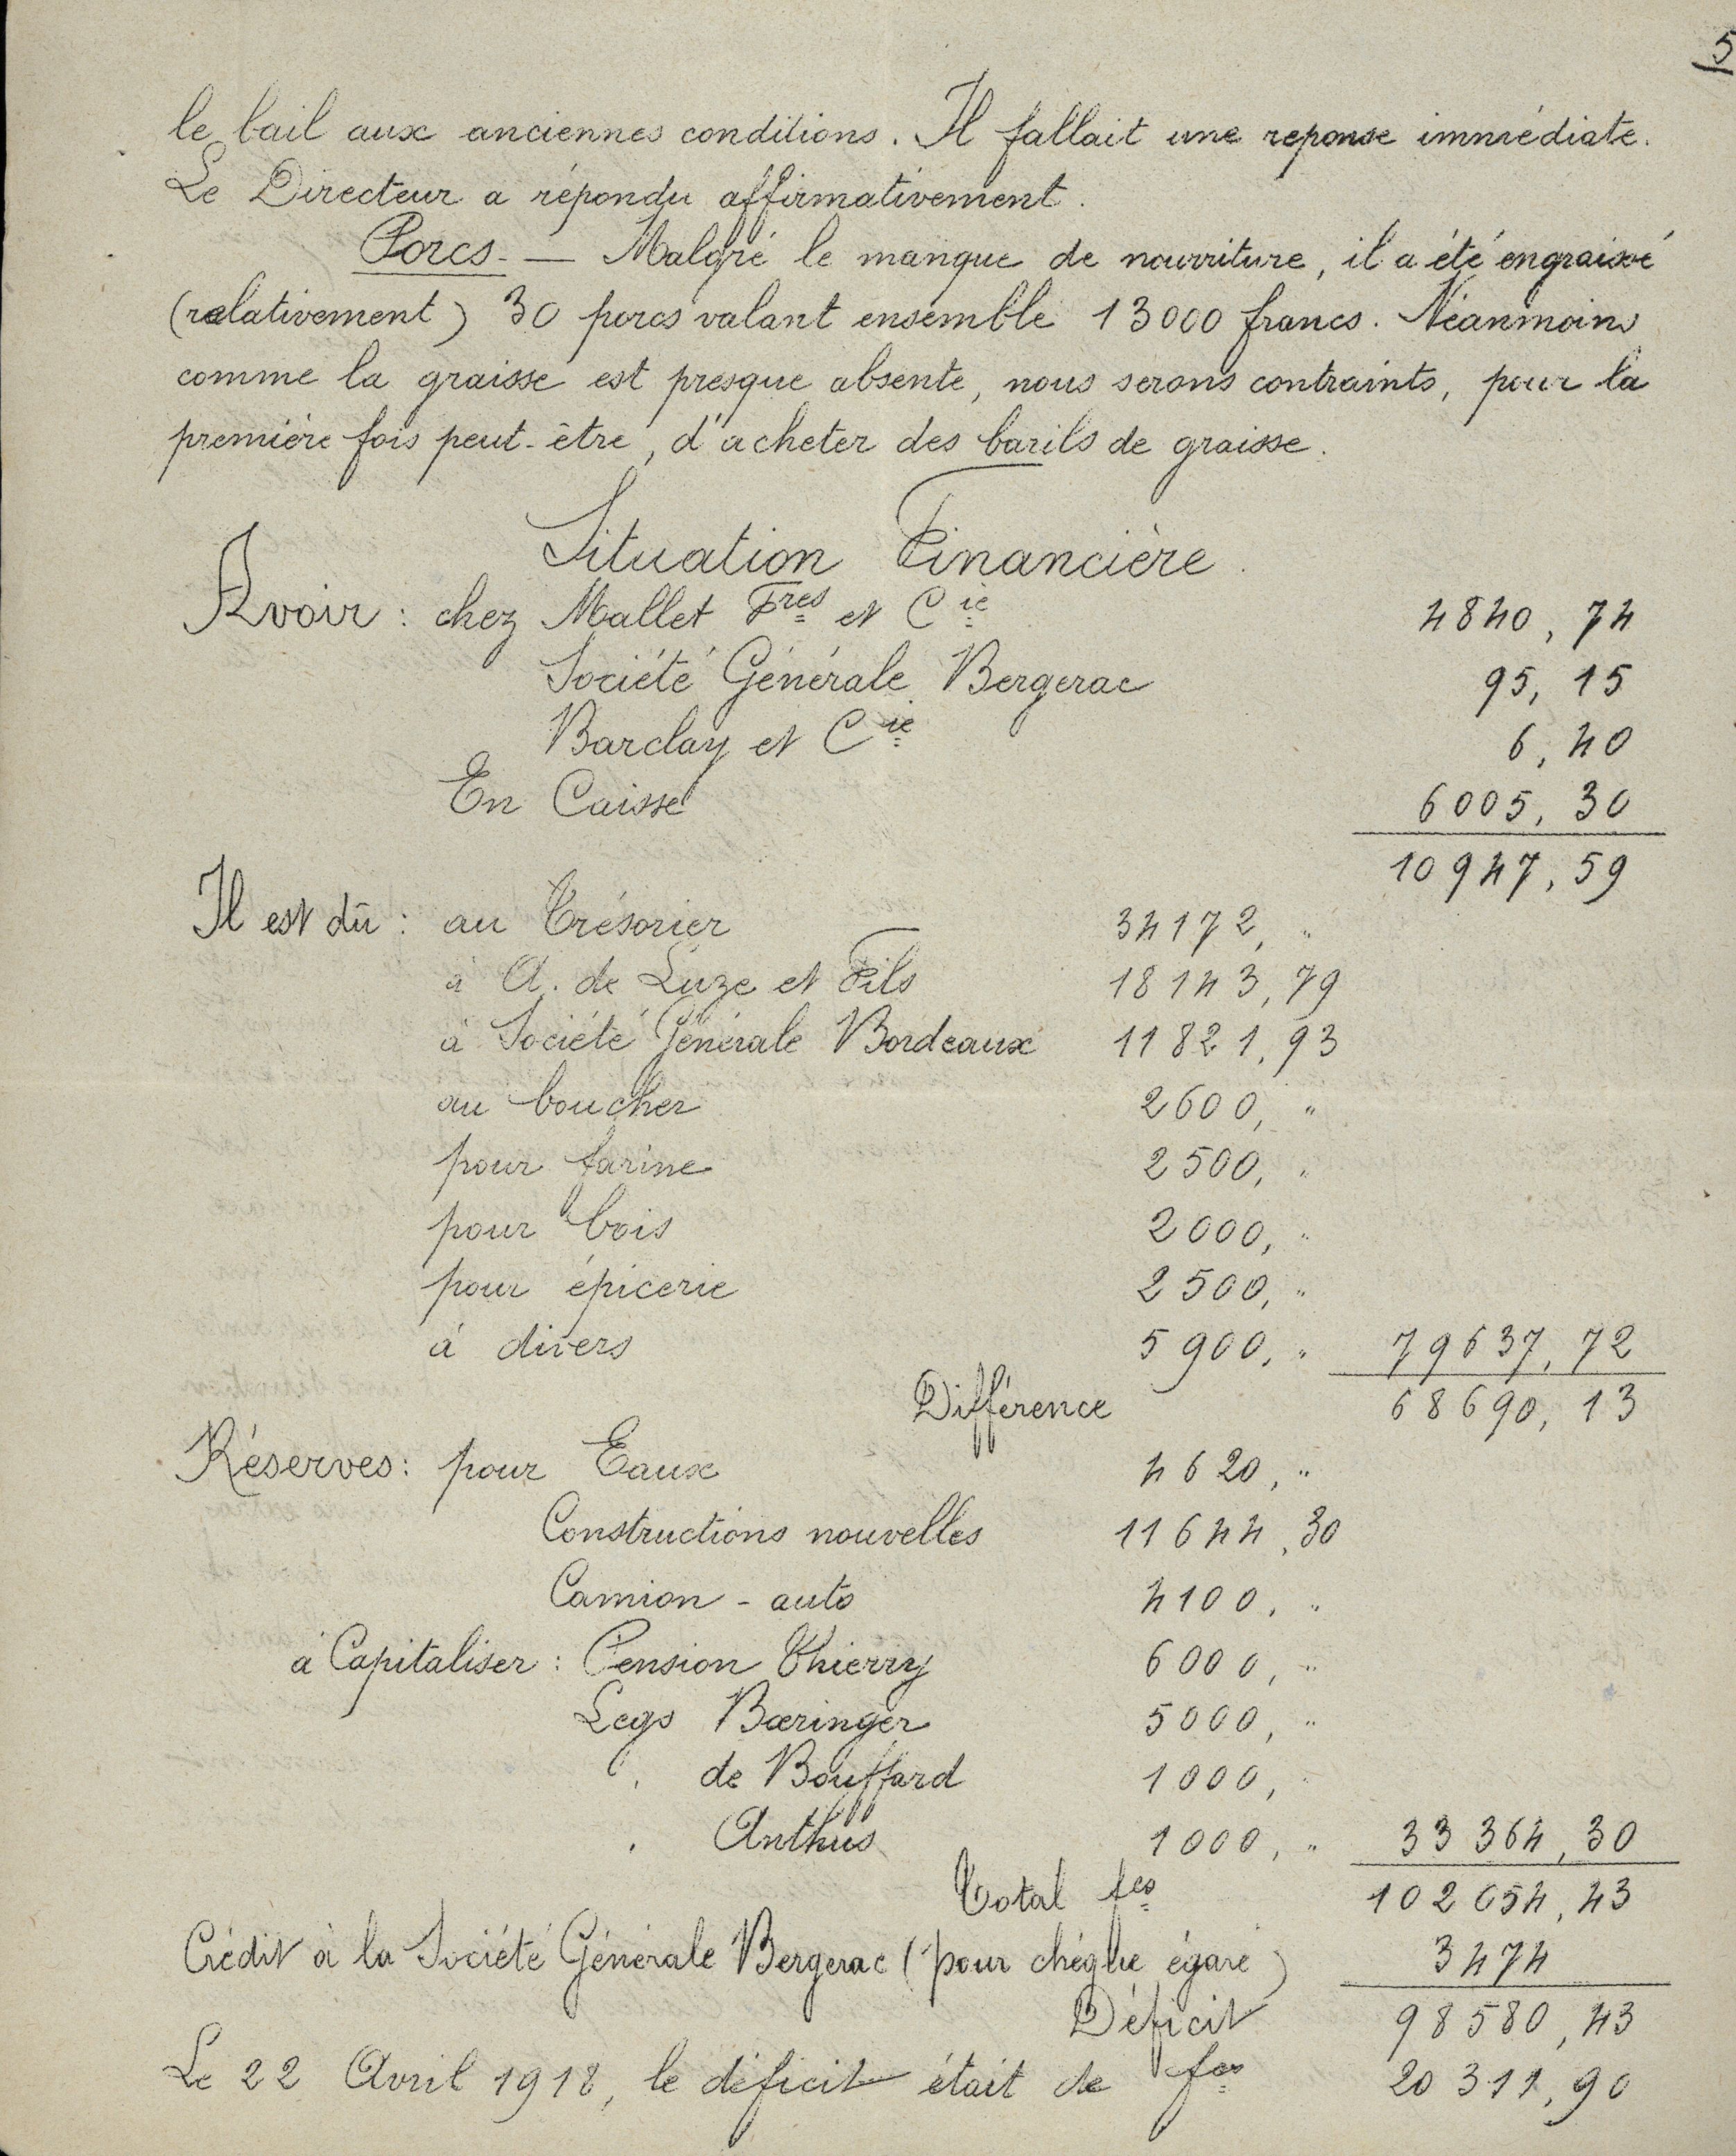 5
le bail aux anciennes conditions. Il fallait une reponse immédiate.
Le Directeur a répondu affirmativement.
Porcs. — Malgré le manque de nourriture, il a été engraissé
(relativement) 30 porcs valant ensemble 13000 francs. Néanmoins
comme la graisse est presque absente, nous serons contraints, pour la
première fois peut-être, d'acheter des barils de graisse.
Situation Financière.
Avoir : chez Mallet Fres et Cie 4840, 74
Société Générale Bergerac 95, 15
Barclay et Cie 6, 40
En Caisse 6005, 30
10947, 59
Il est dû : au Trésorier 34172, "
à A. de Luze et Fils 18143, 79
à Société Générale Bordeaux 11821, 93
au boucher 2600, "
pour farine 2500, "
pour bois 2000, "
pour épicerie 2500, "
à divers 5900, " 79637, 72
Différence 68690, 13
Réserves : pour Eaux 4620, "
Constructions nouvelles 11644, 30
Camion - auto 4100, "
à Capitaliser : Pension Thierry 6000, "
Legs Bœringer 5000, "
" de Bouffard 1000, "
" Anthus 1000, " 33364, 30
Total fcs 102054, 43
Crédit à la Société Générale Bergerac (pour chéque égaré) 3474
Déficit 98580, 43
Le 22 Avril 1918, le déficit était de fcs 20311, 90